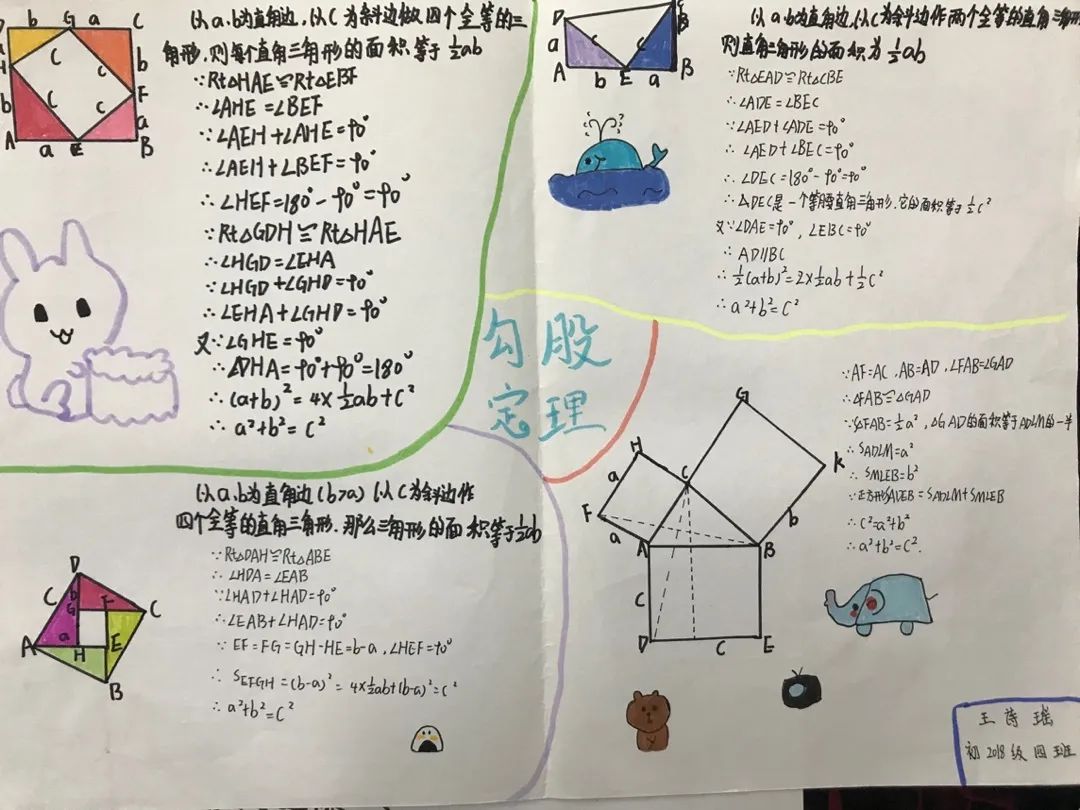 D b G a C
a c c b
H F
b c c a
A a E B
以a、b为直角边,以C为斜边做四个全等的三
角形,则每个直角三角形的面积等于½ab
∵Rt△HAE≌Rt△EBF
∴∠AHE=∠BEF
∵∠AEH+∠AHE=90°
∴∠AEH+∠BEF=90°
∴∠HEF=180°-90°=90°
∵Rt△GDH≌Rt△HAE
∴∠HGD=∠EHA
∵∠HGD+∠GHD=90°
∴∠EHA+∠GHD=90°
又∵∠GHE=90°
∴∠DHA=90°+90°=180°
∴(a+b)²=4×½ab+c²
∴a²+b²=c²
D
a c c b
A b E a B
以a、b为直角边,以C为斜边作两个全等的直角三角形
则直角三角形的面积为½ab
∵Rt△EAD≌Rt△CBE
∴∠ADE=∠BEC
∵∠AED+∠ADE=90°
∴∠AED+∠BEC=90°
∴∠DEC=180°-90°=90°
∴△DEC是一个等腰直角三角形,它的面积等于½c²
又∵∠DAE=90°,∠EBC=90°
∴AD∥BC
∴½(a+b)²=2×½ab+½c²
∴a²+b²=c²
勾股
定理
以a、b为直角边(b>a)以C为斜边作
四个全等的直角三角形,那么三角形的面积等于½ab
∵Rt△DAH≌Rt△ABE
∴∠HDA=∠EAB
∵∠HAD+∠HAD=90°
∴∠EAB+∠HAD=90°
∵EF=FG=GH-HE=b-a,∠HEF=90°
∴SEFGH=(b-a)²=4×½ab+(b-a)²=c²
∴a²+b²=c²
D
C b
G F C
a
A H E
B
∵AF=AC,AB=AD,∠FAB=∠GAD
∴△FAB≌△GAD
∵S△FAB=½a²,△GAD的面积等于ADLM的一半
∴SADLM=a²
∴SMLEB=b²
∵正方形SADEB=SADLM+SMLEB
∴c²=a²+b²
∴a²+b²=c².
G
H
a C K
F b
a A B
C
D C E
王诗瑶
初2018级四班